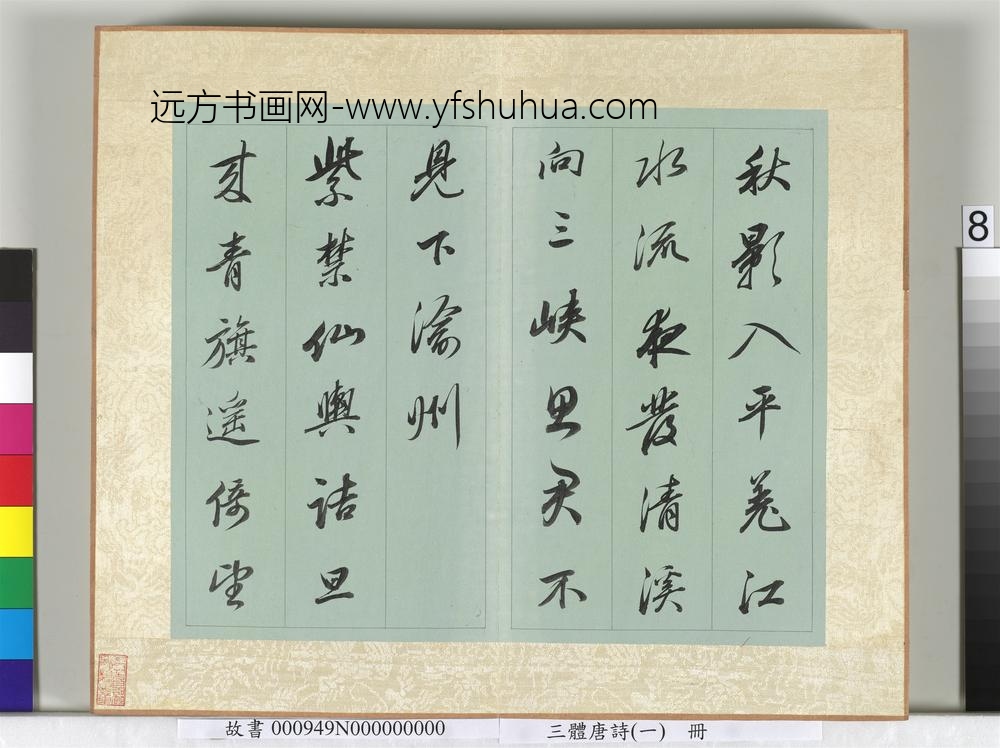 远方书画网-www.yfshuhua.com
秋影入平羌江
水流夜發清溪
向三峽思君不
見下渝州
紫禁仙輿詰旦
來青旗遥倚望
8
故書 000949N000000000
三體唐詩(一) 冊